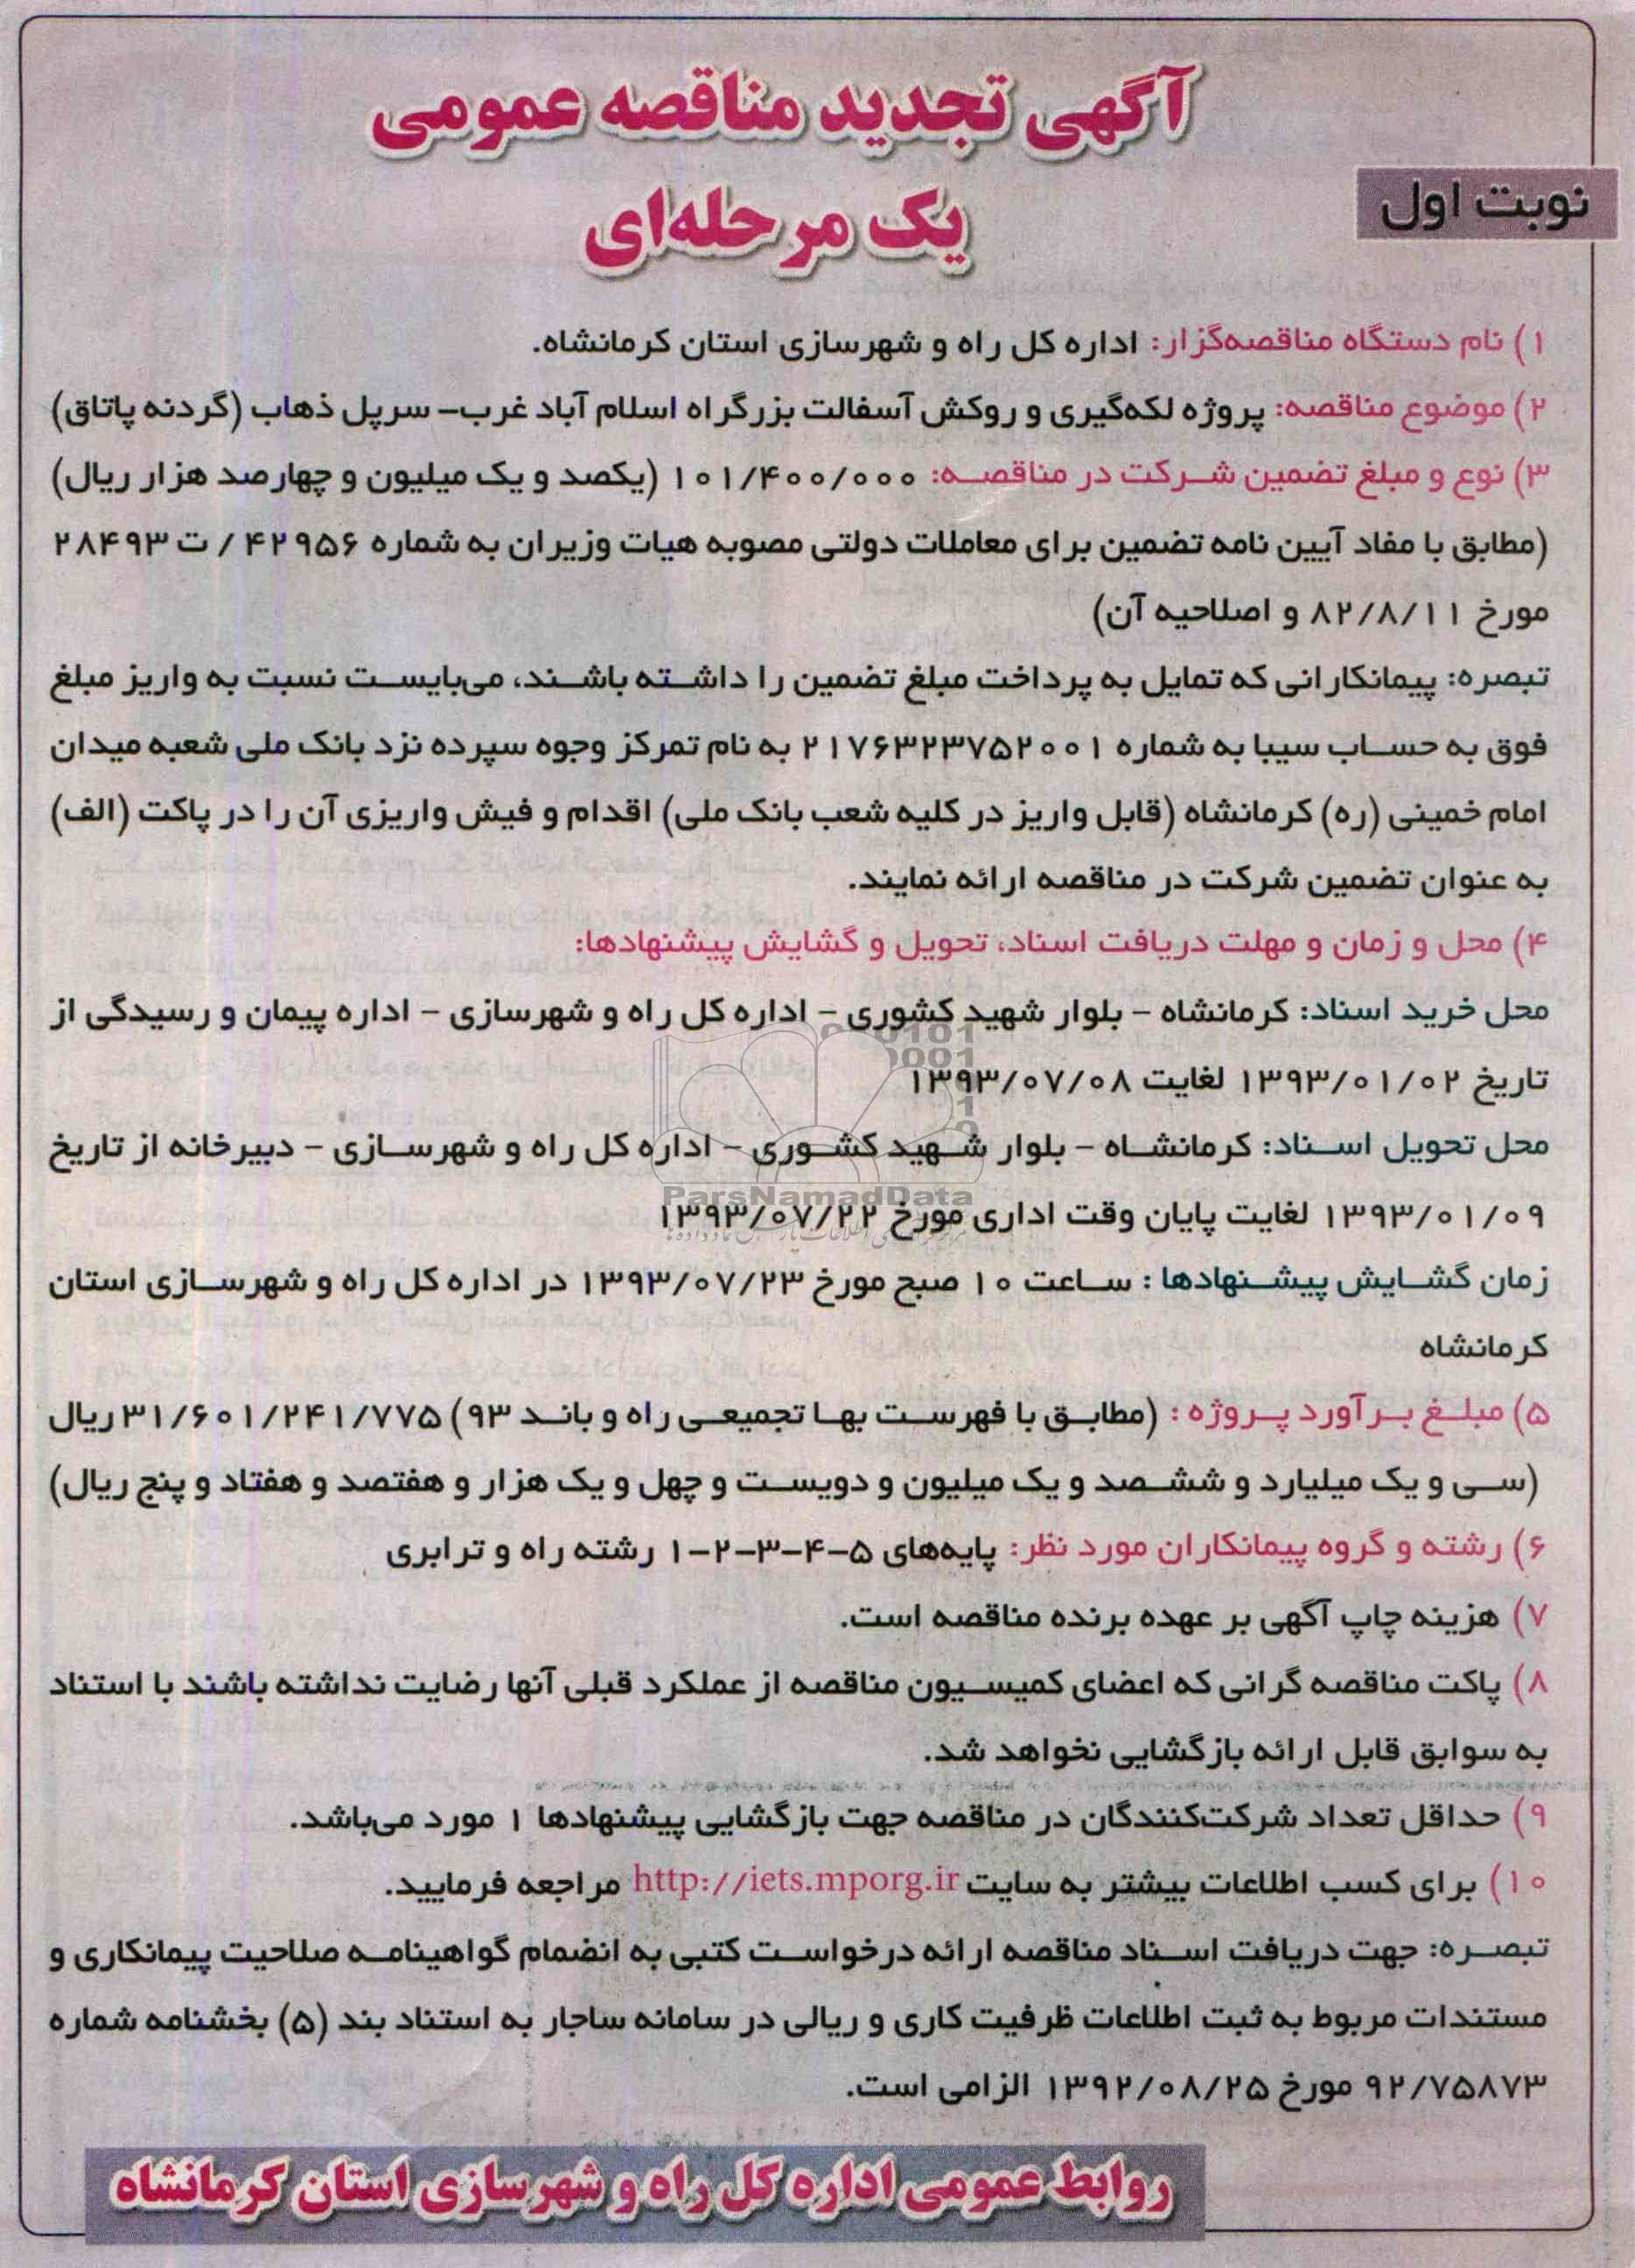 آگهی تجدید مناقصه عمومی
یک مرحله‌ای
نوبت اول
۱) نام دستگاه مناقصه‌گزار: اداره کل راه و شهرسازی استان کرمانشاه.
۲) موضوع مناقصه: پروژه لکه‌گیری و روکش آسفالت بزرگراه اسلام آباد غرب– سرپل ذهاب (گردنه پاتاق)
۳) نوع و مبلغ تضمین شرکت در مناقصه: ۱۰۱/۴۰۰/۰۰۰ (یکصد و یک میلیون و چهارصد هزار ریال)
(مطابق با مفاد آیین نامه تضمین برای معاملات دولتی مصوبه هیات وزیران به شماره ۴۲۹۵۶ / ت ۲۸۴۹۳
مورخ ۸۲/۸/۱۱ و اصلاحیه آن)
تبصره: پیمانکارانی که تمایل به پرداخت مبلغ تضمین را داشته باشند، می‌بایست نسبت به واریز مبلغ
فوق به حساب سیبا به شماره ۲۱۷۶۳۲۳۷۵۲۰۰۱ به نام تمرکز وجوه سپرده نزد بانک ملی شعبه میدان
امام خمینی (ره) کرمانشاه (قابل واریز در کلیه شعب بانک ملی) اقدام و فیش واریزی آن را در پاکت (الف)
به عنوان تضمین شرکت در مناقصه ارائه نمایند.
۴) محل و زمان و مهلت دریافت اسناد، تحویل و گشایش پیشنهادها:
محل خرید اسناد: کرمانشاه – بلوار شهید کشوری – اداره کل راه و شهرسازی – اداره پیمان و رسیدگی از
تاریخ ۱۳۹۳/۰۱/۰۲ لغایت ۱۳۹۳/۰۷/۰۸
محل تحویل اسناد: کرمانشاه – بلوار شهید کشوری – اداره کل راه و شهرسازی – دبیرخانه از تاریخ
۱۳۹۳/۰۱/۰۹ لغایت پایان وقت اداری مورخ ۱۳۹۳/۰۷/۲۲
زمان گشایش پیشنهادها : ساعت ۱۰ صبح مورخ ۱۳۹۳/۰۷/۲۳ در اداره کل راه و شهرسازی استان
کرمانشاه
۵) مبلغ برآورد پروژه : (مطابق با فهرست بها تجمیعی راه و باند ۹۳) ۳۱/۶۰۱/۲۴۱/۷۷۵ ریال
(سی و یک میلیارد و ششصد و یک میلیون و دویست و چهل و یک هزار و هفتصد و هفتاد و پنج ریال)
۶) رشته و گروه پیمانکاران مورد نظر: پایه‌های ۵–۴–۳–۲–۱ رشته راه و ترابری
۷) هزینه چاپ آگهی بر عهده برنده مناقصه است.
۸) پاکت مناقصه گرانی که اعضای کمیسیون مناقصه از عملکرد قبلی آنها رضایت نداشته باشند با استناد
به سوابق قابل ارائه بازگشایی نخواهد شد.
۹) حداقل تعداد شرکت‌کنندگان در مناقصه جهت بازگشایی پیشنهادها ۱ مورد می‌باشد.
۱۰) برای کسب اطلاعات بیشتر به سایت http://iets.mporg.ir مراجعه فرمایید.
تبصره: جهت دریافت اسناد مناقصه ارائه درخواست کتبی به انضمام گواهینامه صلاحیت پیمانکاری و
مستندات مربوط به ثبت اطلاعات ظرفیت کاری و ریالی در سامانه ساجار به استناد بند (۵) بخشنامه شماره
۹۲/۷۵۸۷۳ مورخ ۱۳۹۲/۰۸/۲۵ الزامی است.
روابط عمومی اداره کل راه و شهرسازی استان کرمانشاه
ParsNamadData